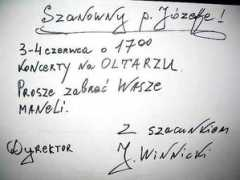 Szanowny p. Józefie!
3-4 czerwca o 17⁰⁰
KONCERTY NA OŁTARZU.
PROSZE ZABRAĆ WASZE
MANELI.
Z szacunkiem
DYREKTOR J. WINNICKI